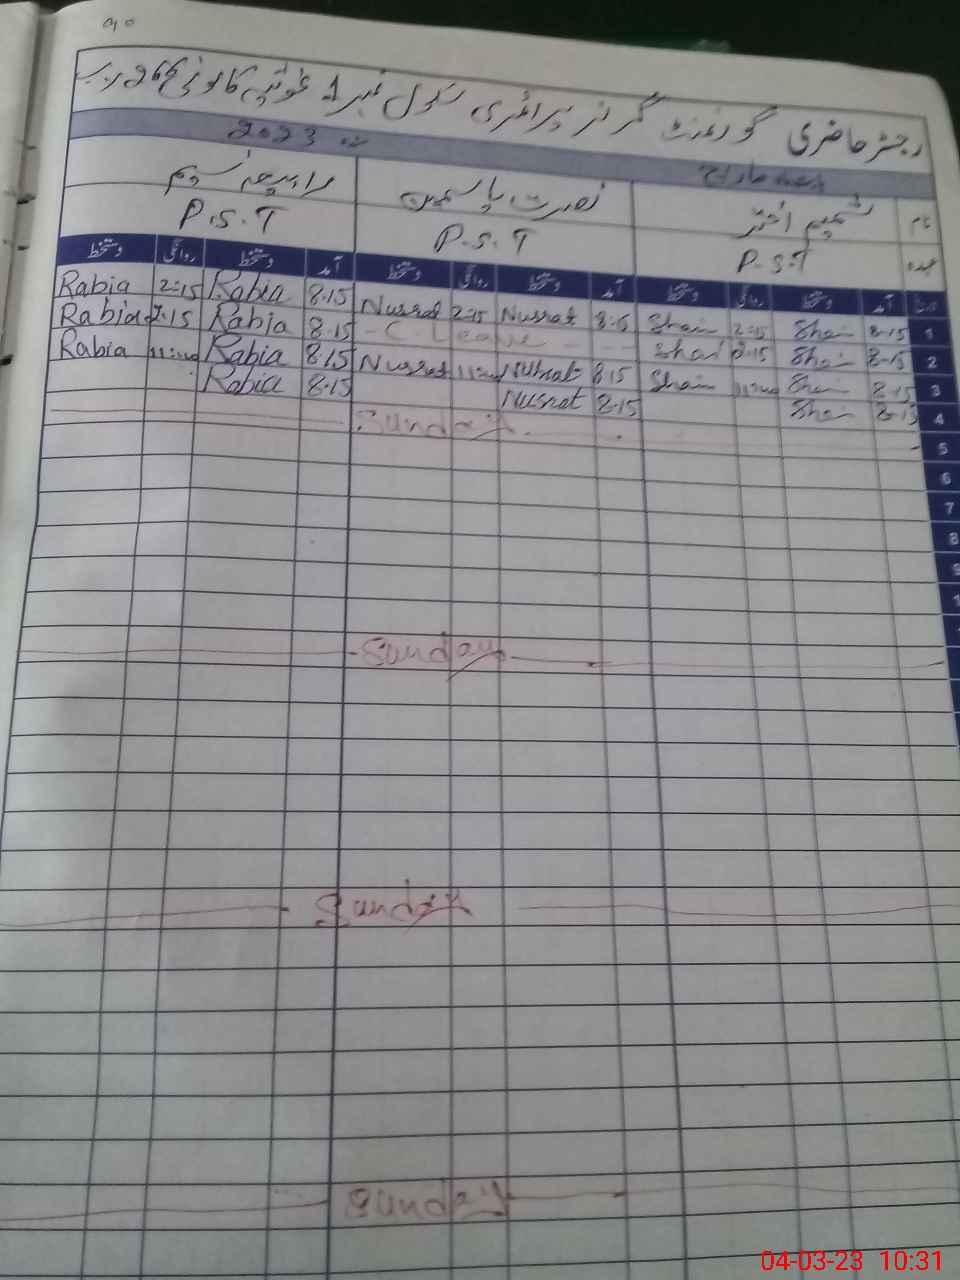 رجسٹر حاضری گورنمنٹ گرلز پرائمری سکول نمبر 1 غوثیہ کالونی
ماہ مارچ 2023ء
نام شمیم اختر نصرت یاسمین رابیعہ نسیم
عہدہ P.S.T P.S.T P.S.T
آمد دستخط روانگی دستخط آمد دستخط روانگی دستخط آمد دستخط روانگی دستخط
1 8.15 Sham 2:15 Sham 8.15 Nusrat 2:15 Nusrat 8.15 Rabia 2:15 Rabia
2 8.15 Sham 2.15 Sham - C-Leave - 8.15 Rabia 2.15 Rabia
3 8.15 Sham Sham 8.15 Nusrat Nusrat 8.15 Rabia Rabia
4 8.15 Sham 8.15 Nusrat 8.15 Rabia
5 Sunday
6
7
8
9
Sunday
Sunday
Sunday
04-03-23 10:31